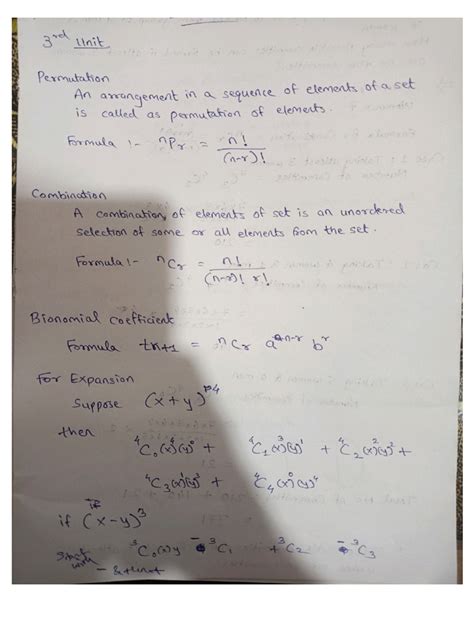 3rd Unit
Permutation
An arrangement in a sequence of elements of a set
is called as permutation of elements.
Formula :- nPr = n! / (n-r)!
Combination
A combination of elements of set is an unordered
selection of some or all elements from the set.
Formula :- nCr = n! / (n-r)! r!
Bionomial coefficient
Formula tn+1 = nCr a^n-r b^r
For Expansion
Suppose (x+y)^4
then ⁴C₀(x)⁴(y)⁰ + ⁴C₁(x)³(y)¹ + ⁴C₂(x)²(y)² +
⁴C₃(x)¹(y)³ + ⁴C₄(x)⁰(y)⁴
if (x-y)³
³C₀(x)y - ³C₁ + ³C₂ - ³C₃
with -